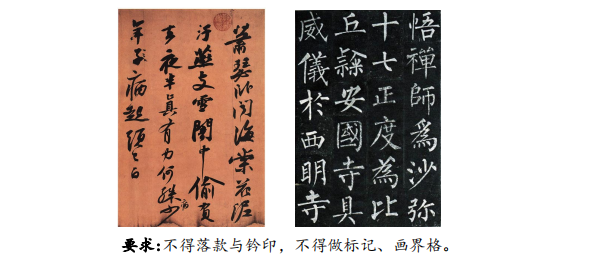 蕭瑟卧聞海棠花泥
汙燕支雪闇中偷負
去夜半真有力何殊少
病
年子病起頭已白
悟禪師爲沙弥
十七正度為比
丘隸安國寺具
威儀於西明寺
要求:不得落款与钤印，不得做标记、画界格。